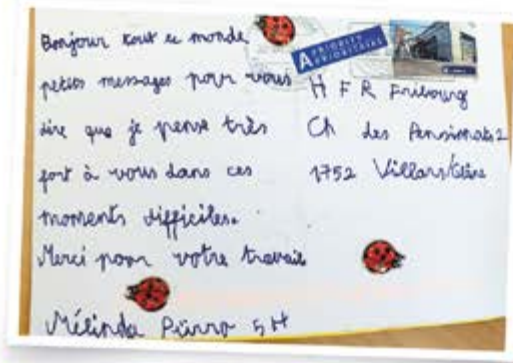 Bonjour tout le monde
petits messages pour vous
dire que je pense très
fort à vous dans ces
moments difficiles.
Merci pour votre travail
Mélinda Pürro 5H
A PRIORITY
PRIORITAIRE
H F R Fribourg
Ch des Pensionnats 2
1752 Villars/Glâne